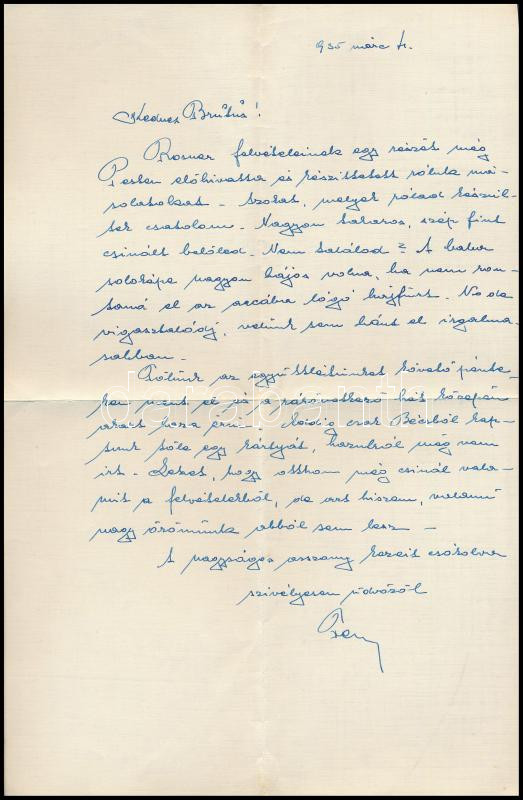 935 márc
Kedves Brútus!
Rosner felvételeinek egy részét még
Pesten előhivatta és készittetett róluk má-
solatokat. Azokat, melyek rólad készül-
tek csatolom. Nagyon takaros, szép fiút
csinált belőled. Nem találod? A baba
szóló képe nagyon bájos volna, ha nem ron-
taná el az arcába lógó hajfürt. No de
vigasztalódj, velünk sem bánt el irgalma-
sabban.
Tőlünk az együttlétünket követő pénte-
ken ment el és a rákövetkező hét közepén
akart haza érni. Eddig csak Bécsből kap-
tunk tőle egy kártyát, hazulról még nem
írt. Lehet, hogy otthon még csinál vala-
mit a felvételekből, de azt hiszem, valami
nagy örömünk abból sem lesz -
A nagyságos asszony kezeit csókolva
szivélyesen üdvözöl
darabanth.com